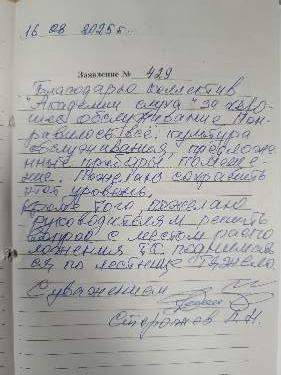 16 08 2025 г.
Заявление № 429
Благодарю коллектив
"Академии слуха" за хоро-
шее обслуживание Пон-
равилось всё: культура
обслуживания, предложен-
ные приборы помеще-
ние. Пожелаю сохранить
этот уровень.
Кроме того пожелаю
руководителям решить
вопрос с местом распо
ложения т.к. поднимать
ся по лестнице тяжело
С уважением
Сторожев Л.Н.